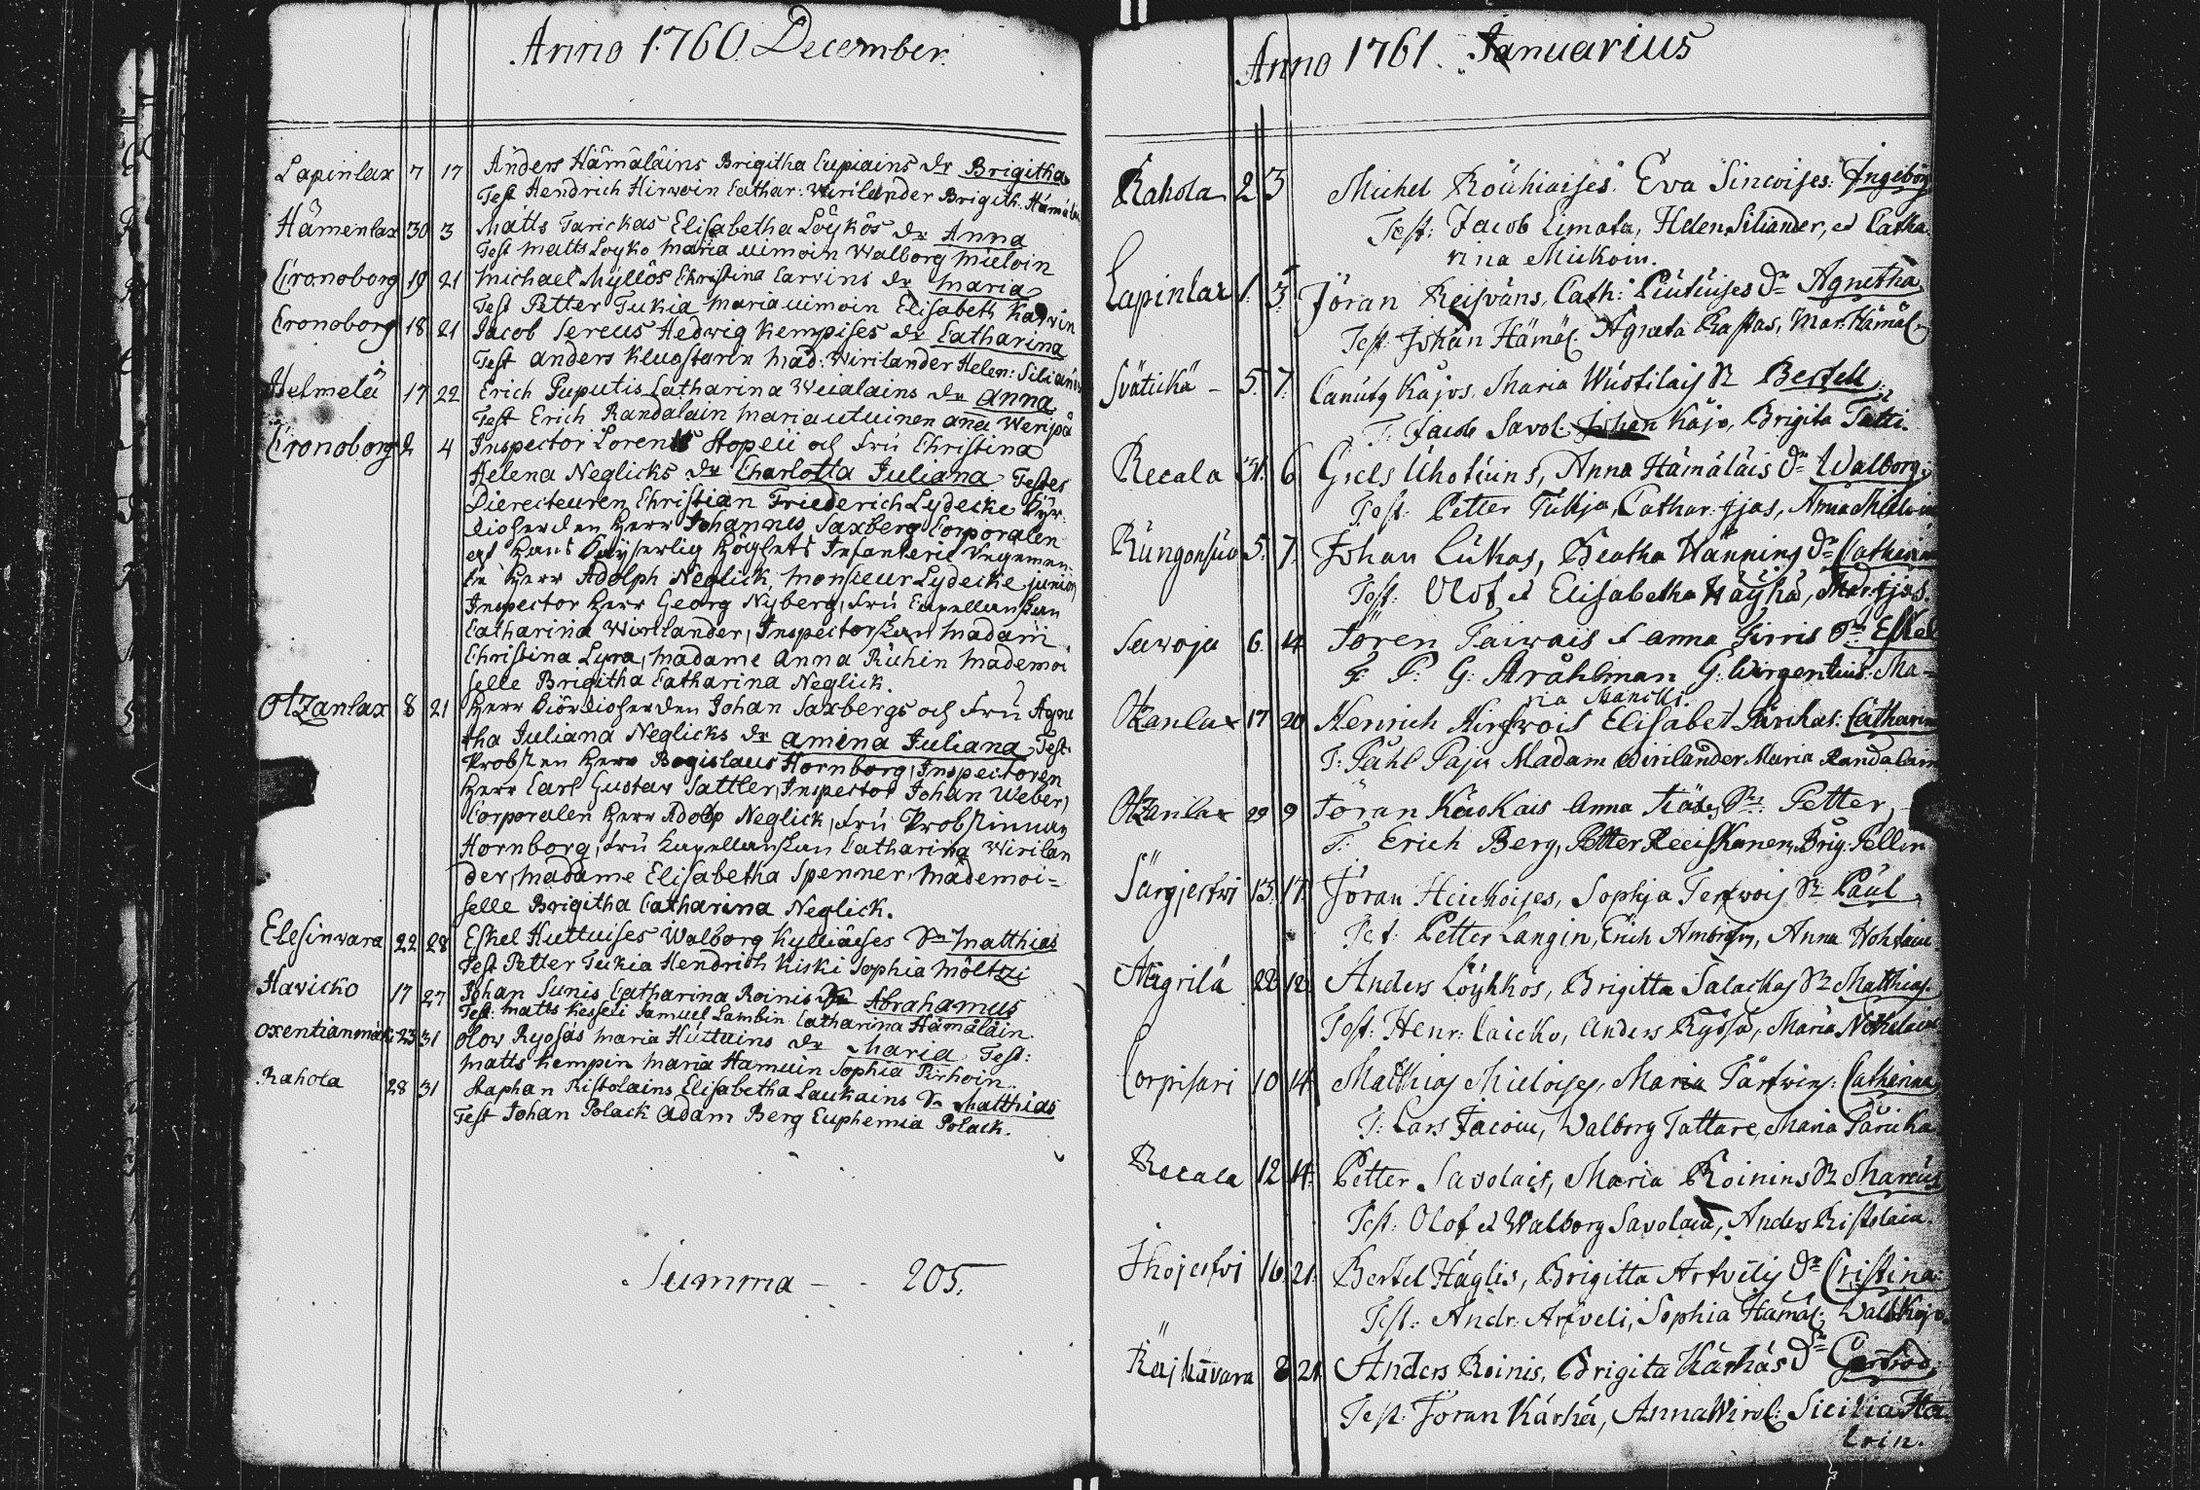 Anno 1760. December.
Lapinlax 7 17 Anders Hämäläins Brigitha Cupiains dr Brigitha
Test Hendrich Hirwoin Cathar: Wirilander Brigith: Hämäläin
Hämenlax 30 3 Matts Tarickas Elisabetha Löykös dr Anna
Test Matts Loyko Maria Uimoin Walborg Mieloin
Cronoborg 19 21 Michael Myllös Christina Carvins dr Maria
Test Petter Tukia Maria Uimoin Elisabeth Karvin
Cronoborg 18 21 Jacob Sereus Hedwig Kempises dr Catharina
Test Anders Klugstarin Mad: Wirilander Helen: Silian
Helmelä 17 22 Erich Puputis Catharina Weialains dr Anna
Test Erich Randalain Maria Utuinen Ana Weripä
Cronoborg 2 4 Inspector Lorents Stopeii och Fru Christina
Helena Neglicks dr Charlotta Juliana Testes
Directeuren Christian Friederich Lydecke Kyr-
dioherden Herr Johannes Saxberg Corporalen
af Hans Kayserlig Höghets Infanterie Regemen-
te Herr Adolph Neglick, Monsieur Lydecke junior,
Inspector Herr Georg Nyberg, Fru Capellanskan
Catharina Wirilander, Inspectorskan Madam
Christina Lyra, Madame Anna Ruhin Mademoi
selle Brigitha Catharina Neglick.
Otzanlax 8 21 Herr Kiördioherden Johan Saxbergs och Fru Agne
tha Juliana Neglicks dr Amina Juliana Test:
Probsten Herr Bogislaus Hornborg, Inspectoren
Herr Carl Gustav Sattler, Inspector Johan Weber,
Corporalen Herr Adolp Neglick, Fru Probstinnan
Hornborg, Fru Kapellanskan Catharina Wirilan
der, Madame Elisabetha Spenner, Mademoi=
selle Brigitha Catharina Neglick.
Elesinwara 22 28 Eskel Huttuises Walborg Kylliäises Sn Matthias
Test Petter Tukia Hendrich Kiski Sophia Möltzi
Havicko 17 27 Johan Sunis Catharina Roinis Sn Abrahamus
Test: Matts Kesseli Samuel Lambin Catharina Hämäläin.
Oxentianmäki 23 31 Olov Ryosäs Maria Huttuins dr Maria Test:
Matts Kempin Maria Hamuin Sophia Pirhoin.
Rahola 28 31 Staphan Ristolains Elisabetha Laukains Sn Matthias
Test Johan Polack Adam Berg Euphemia Polack.
Summa - - 205.
Anno 1761. Januarius
Rahola 2 3 Michel Röuhiaises. Eva Sincoises: Ingeborg
Test: Jacob Limata, Helen Siliander, et Catha
rina Mickoin.
Lapinlax 1. 3. Jöran Reisväns, Cath: Piutuises dr Agnetha
Test: Johan Hämäl: Agneta Rastas, Mar: Hämäl:
Svätickä - 5. 7. Canutg Käjos, Maria Wuotilais Sn Bertell
T: Jacob Savol: Käjo, Brigita Tatti.
Recala 31. 6 Giels Uhotuins, Anna Hämäläis dr Walborg
Test: Petter Tukja, Cathar: Jjas, Anna Mieloin
Rungonsuo 5. 7. Johan Lukas, Beatha Hännins dr Catharin
Test: Olof et Elisabetha Häyhä, Mar: Jjas.
Savoja 6. 14 Jören Taiwais & Anna Hirris Sn Eskel
T: P: G: Stråhlman G: Wirgentius: Ma-
ria Manilli.
Otzanlax 17 20 Henrich Hirfwois Elisabet Surikas: Catharin
T: Påhl Paju Madam Wirilander Maria Randalain
Otzanlax 29 9 Jöran Käokais Anna Sn: Petter,
T: Erich Berg, Petter Reeiskanen, Brig: Pellin
Särgjerfwi 13. 17. Jöran Heickoises, Sophja Terfwois Sn Paul
Test: Petter Langin, Erich Ambrosy, Anna Wohlain
Mägrilä 28 12 Anders Löykkös, Brigitta Salackas Sn Matthias.
Test: Henr: Laicko, Anders Ryösä, Maria Nokelain
Corpisari 10 14 Matthias Mieloises, Maria Pärfwins: Catharina
T: Lars Jacoin, Walborg Tattare, Maria Päricka
Recala 12 14. Petter Savolais, Maria Roinins Sn Marcus
Test: Olof et Walborg Savolain, Anders Ristolain.
Ihojerfvi 16. 21. Bertel Häglis, Brigitta Artvilis dr Cristina:
Test: Andr: Arfveli, Sophia Hämäl: Walb Käjo.
Rajkävara 8 21 Anders Reinis, Brigita Kärhäs dr Gertrod.
Test: Joran Kärhä, Anna Wirol: Sicilia Ha
loin.